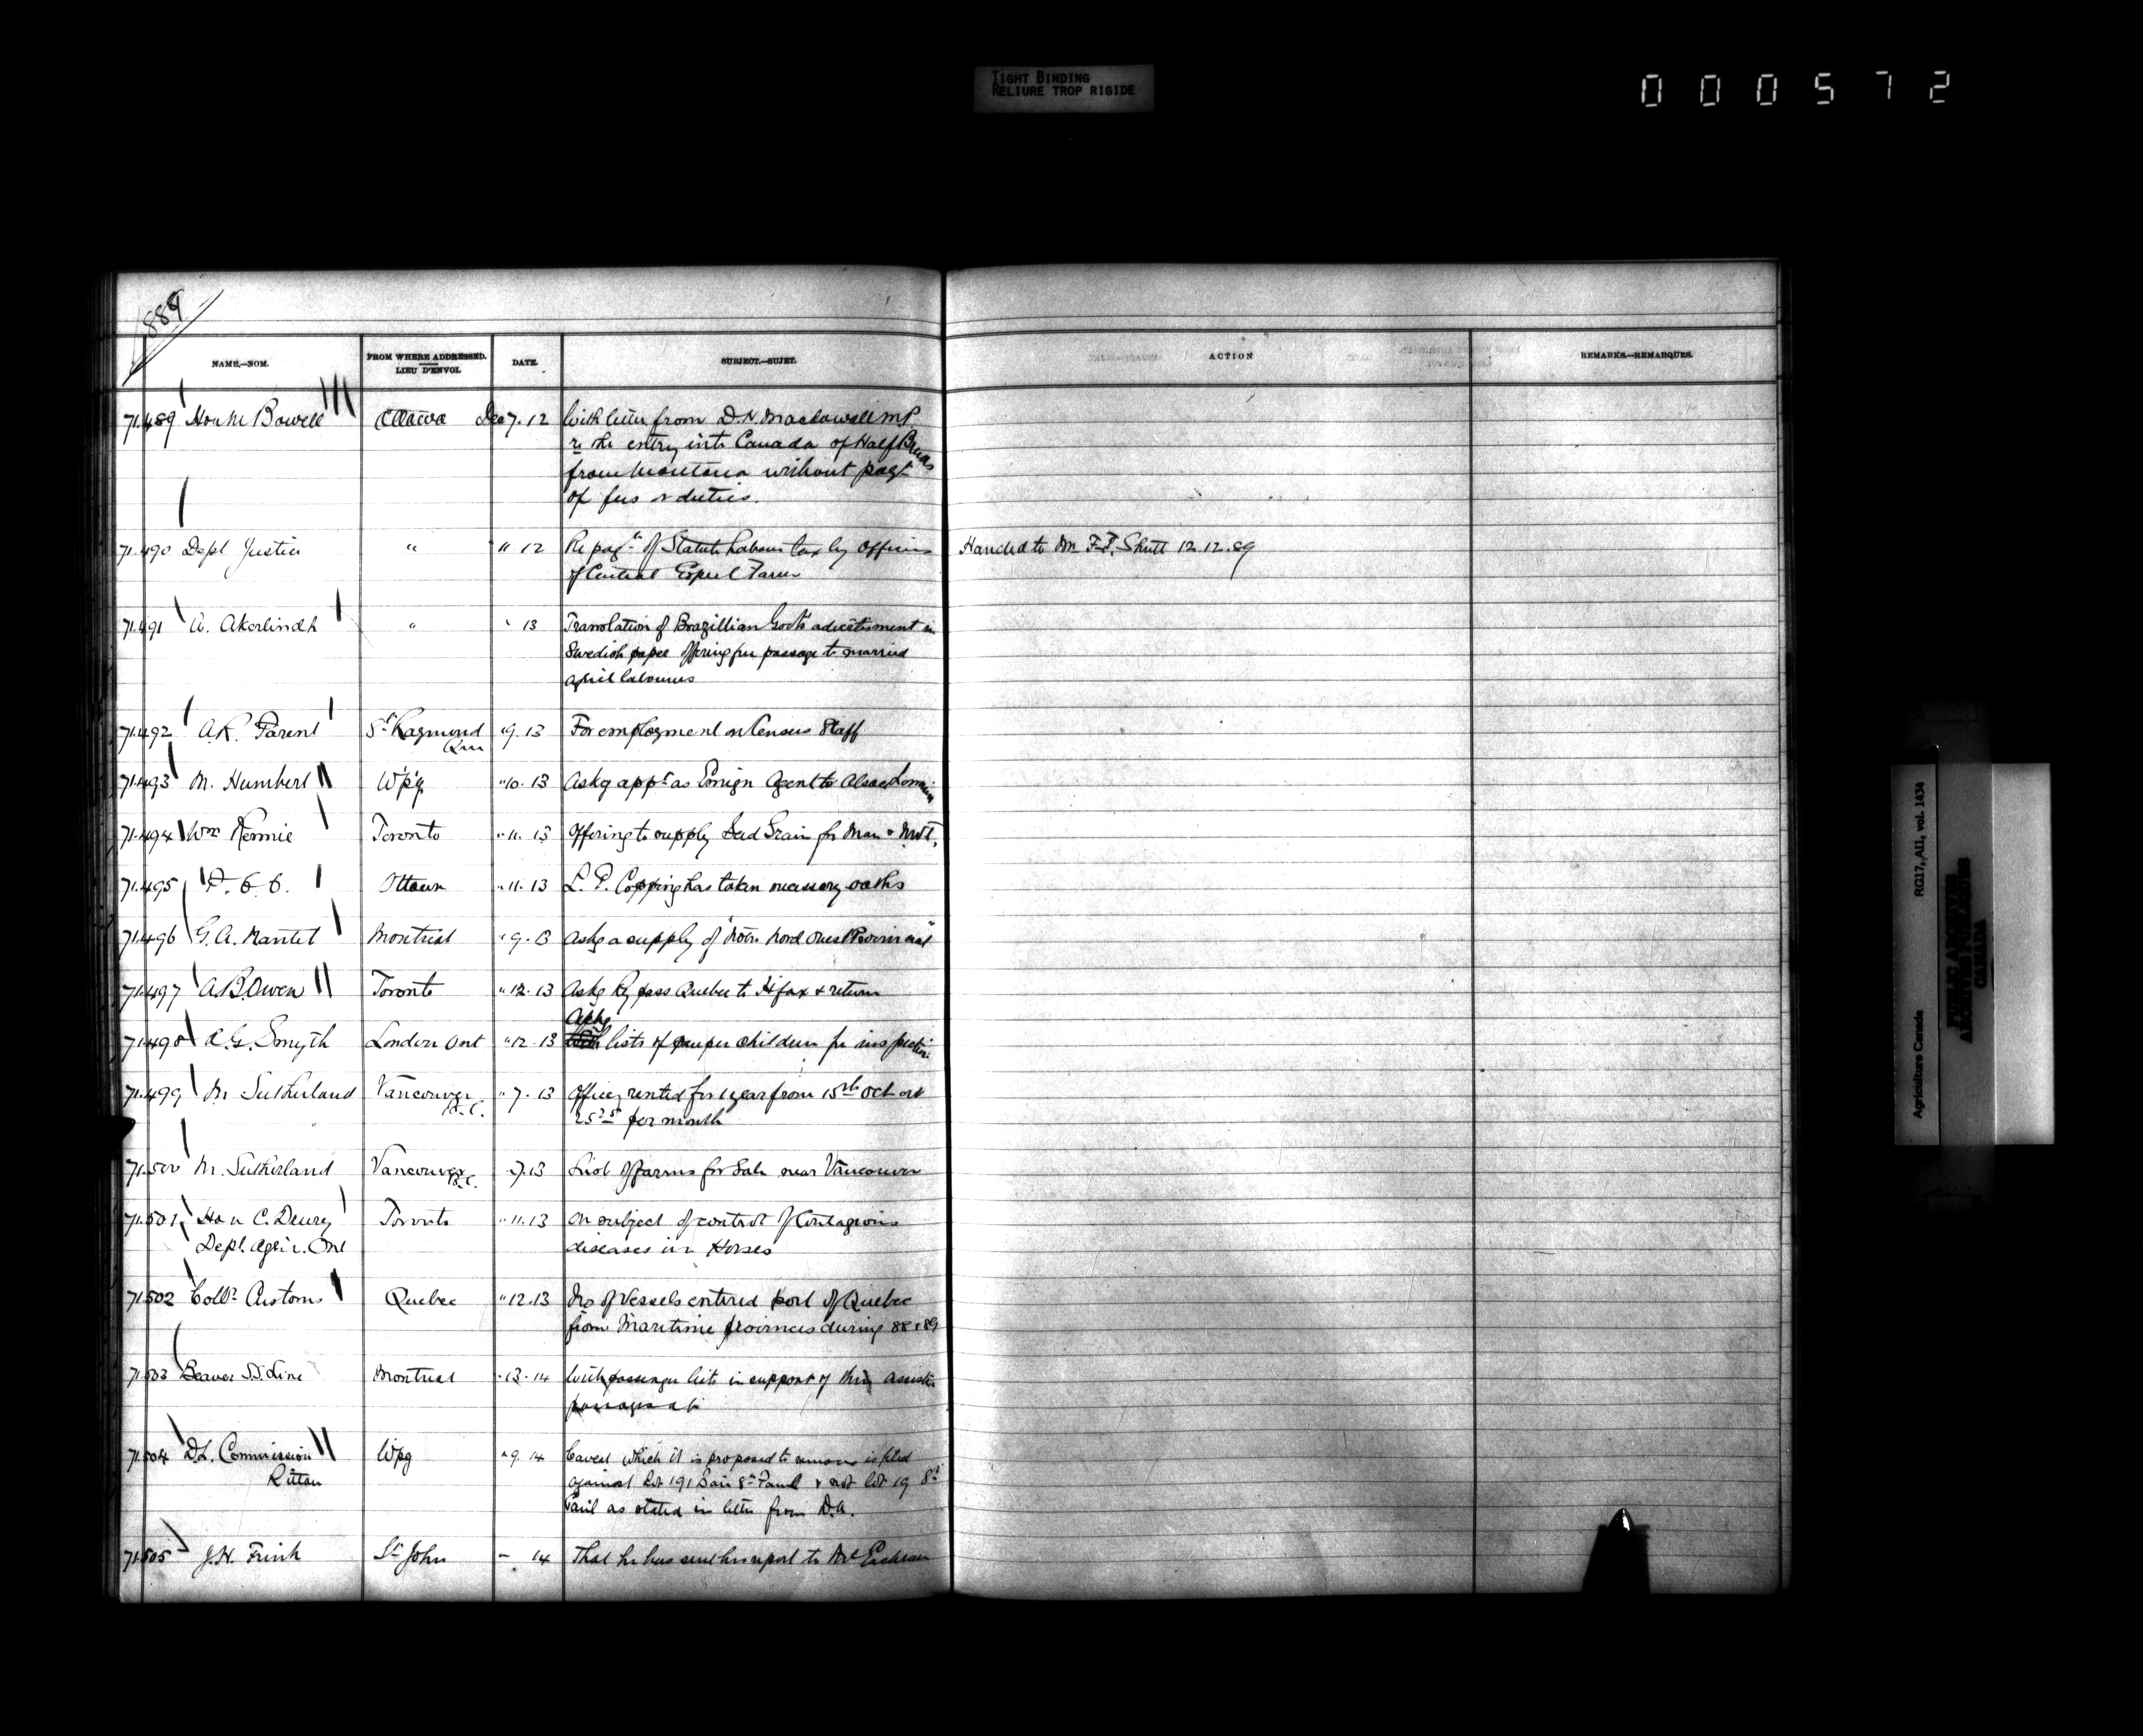 TIGHT BINDING
RELIURE TROP RIGIDE
000572
1889
NAME.—NOM.
FROM WHERE ADDRESSED.
LIEU D'ENVOI.
DATE.
SUBJECT.—SUJET.
ACTION
REMARKS.—REMARQUES.
71.489 Hon M Bowell Ottawa Dec 7. 12 With letter from D.H. Macdowall M.P.
re the entry into Canada of Half Breeds
from Montana without payt
of fees or duties.
71.490 Dept Justice " " 12 Re payt of Statute Labour tax by Officers
of Central Exptl Farm
Handed to Mr F.T. Shutt 12.12.89
71.491 A. Akerlindh " " 13 Translation of Brazillian Govt's advertisment in
Swedish paper offering free passage to married
agricl labourers
71.492 A.R. Parent St Raymond
Que
"9. 13 For employment on Census Staff
71.493 M. Humbert Wpg "10. 13 Askg appt as Emign Agent to Alsace Lorraine
71.494 Wm Rennie Toronto "11. 13 Offering to supply Seed Grain for Man & NWT.
71.495 P. C. C. Ottawa "11. 13 L. E. Copping has taken necessary oaths
71.496 G.A. Nantel Montreal "9. 13 Askg a supply of "Notre Nord Ouest Provincial"
71.497 A.B. Owen Toronto "12. 13 Askg Ry pass Quebec to Hfax & return
Askg
71.498 A.G. Smyth London Ont "12. 13 lists of pauper children for inspection
71.499 M Sutherland Vancouver
B.C.
"7. 13 Office, rented for 1 year from 15th Oct at
per month
71.500 M. Sutherland Vancouver
B.C.
"7. 13 List of farms for Sale near Vancouver
71.501 Hon C. Drury Toronto "11. 13 On subject of control of Contagious
Dept. Agric. Ont diseases in Horses
71.502 Collr Customs Quebec "12. 13 No of Vessels entered port of Quebec
from Maritime provinces during 88 & 89
71.503 Beaver S.S. Line Montreal "13. 14 With passenger lists in support of their assisted
71.504 D.L. Commission Wpg "9. 14 Caveat which it is proposed to remove is filed
Ruttan against Lot 191 Par: St Paul & not lot 19 St
Paul as stated in letter from D.A.
71.505 J.H. Frink St John " 14 That he has sent his report to McEachran
Agriculture Canada RG17, AII, vol. 1434
PUBLIC ARCHIVES
ARCHIVES PUBLIQUES
CANADA